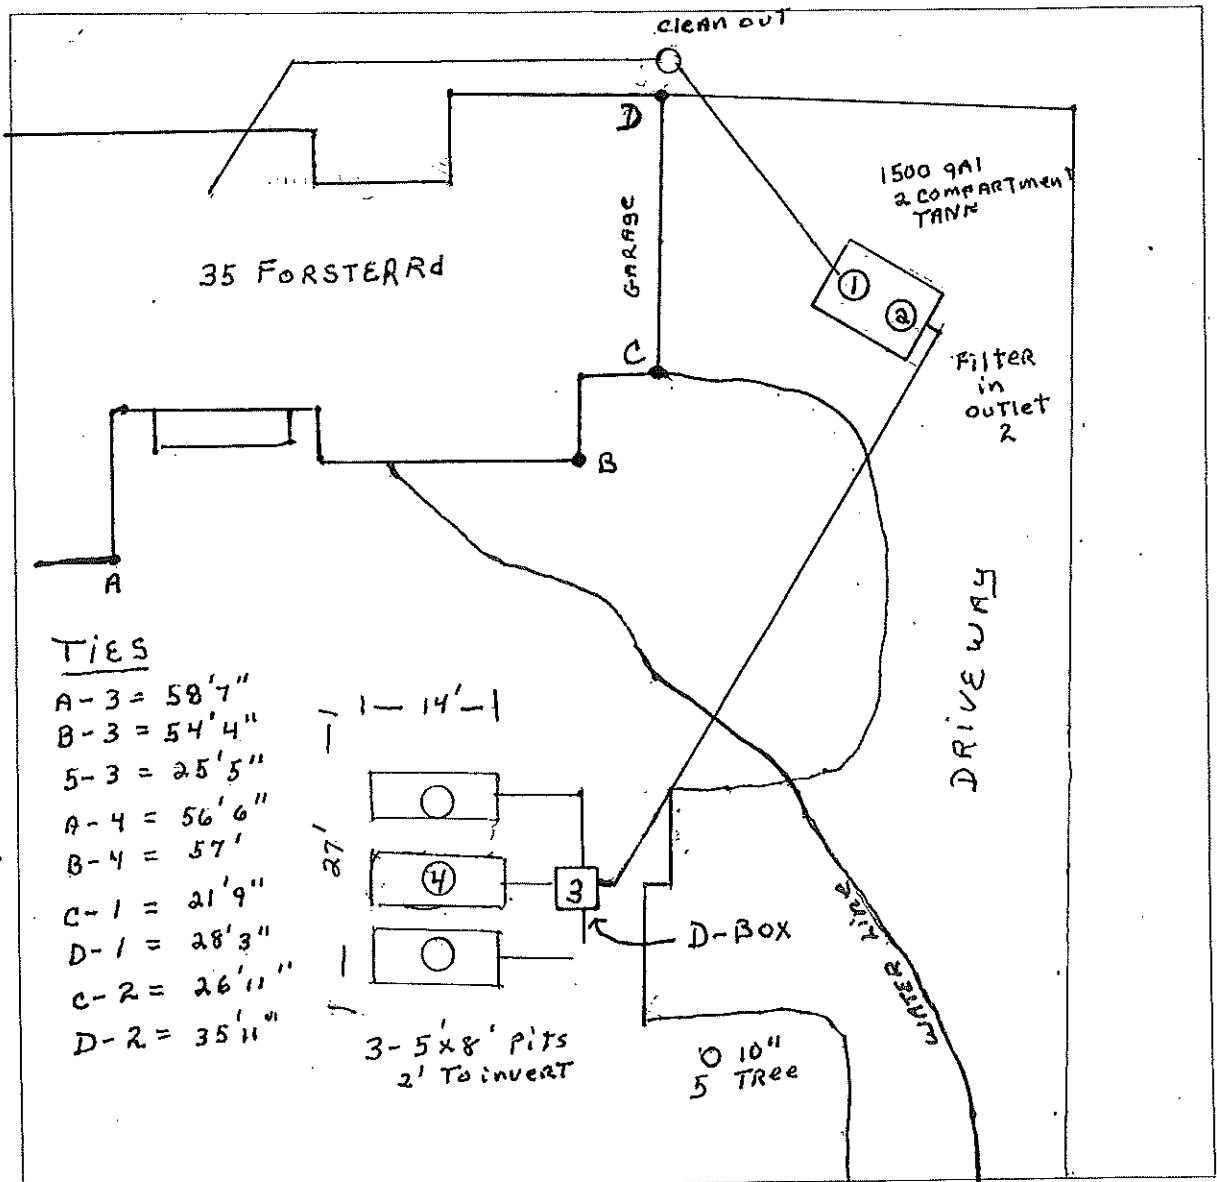 CleAn ouT
D
1500 gAl
2 COMPARTMenT
TANK
GARAGE
35 FORSTER Rd
1
2
C
Filter
in
ouTlet
2
B
A
DRIVEWAY
TiES
A-3 = 58'7"
B-3 = 54'4"
5-3 = 25'5"
A-4 = 56'6"
B-4 = 57'
C-1 = 21'9"
D-1 = 28'3"
C-2 = 26'11"
D-2 = 35'11"
14'
27'
4
3
D-BOX
WATER Line
3- 5'x8' PiTs
2' To inveRT
10"
5 TRee